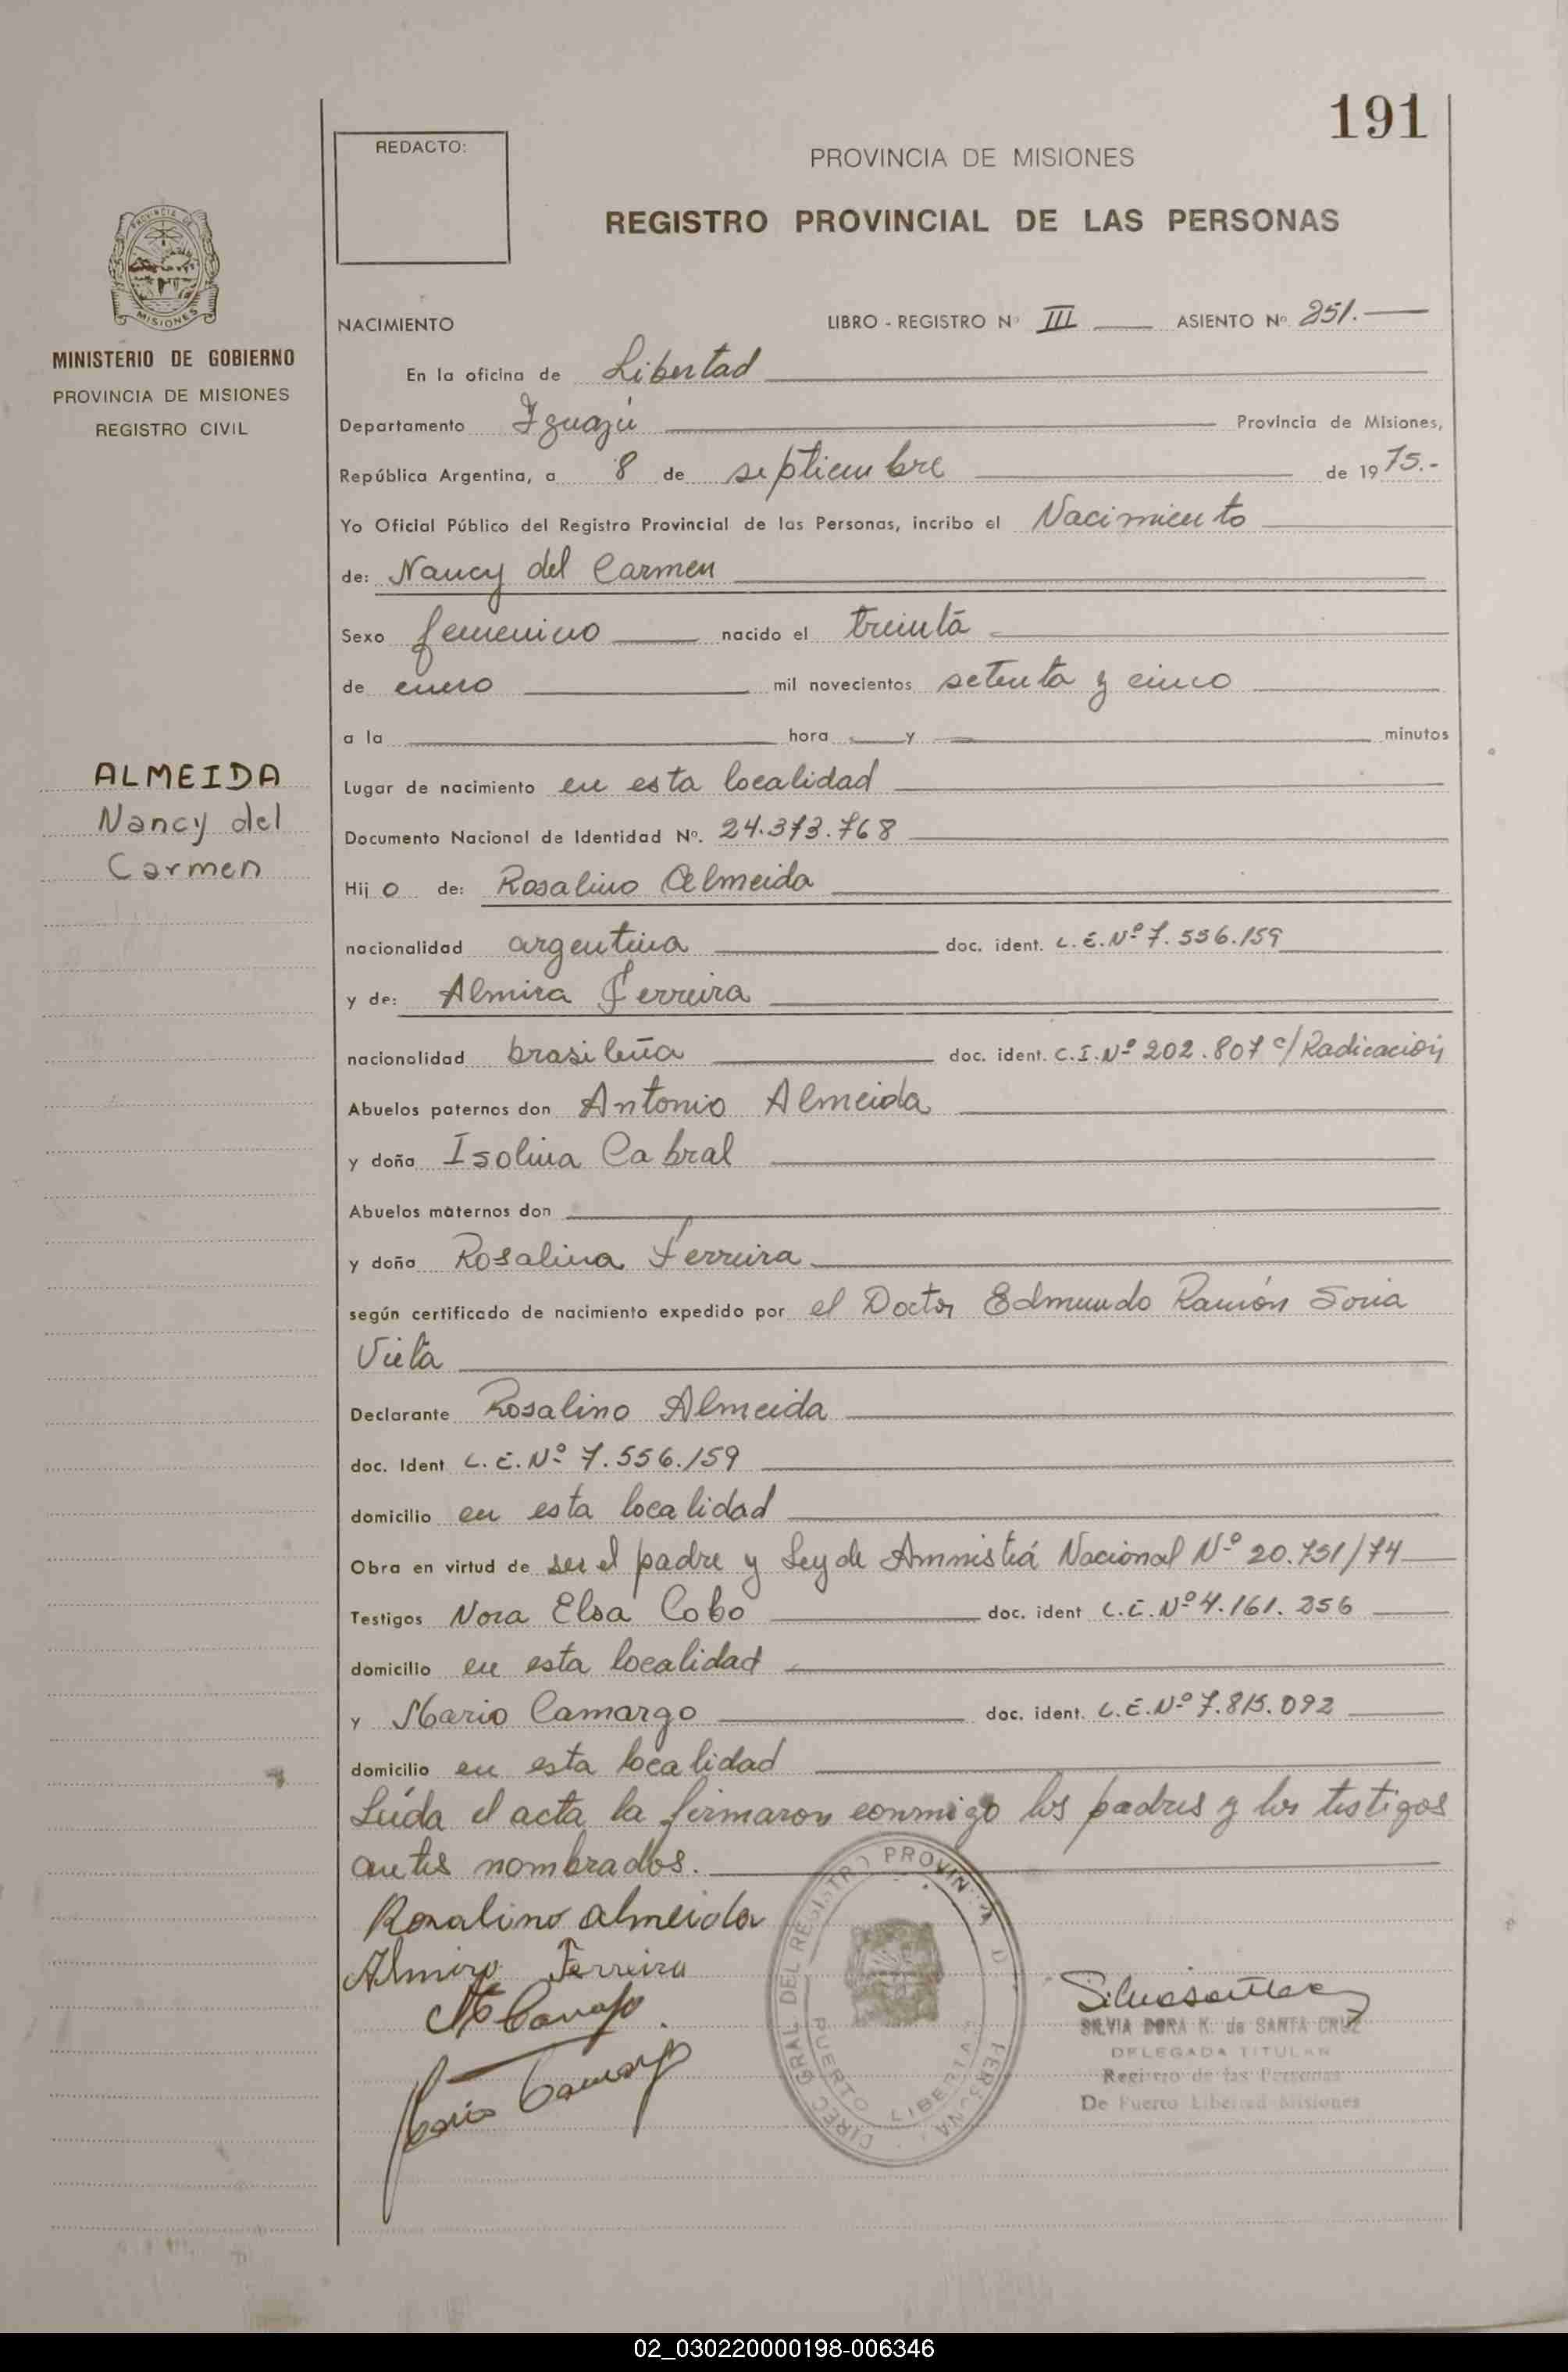 191
REDACTO:
PROVINCIA DE MISIONES
REGISTRO PROVINCIAL DE LAS PERSONAS
PROVINCIA DE
MISIONES
MINISTERIO DE GOBIERNO
PROVINCIA DE MISIONES
REGISTRO CIVIL
NACIMIENTO LIBRO - REGISTRO Nº III ASIENTO Nº 251.
En la oficina de Libertad
Departamento Iguazú Provincia de Misiones,
República Argentina, a 8 de septiembre de 1975.-
Yo Oficial Público del Registro Provincial de las Personas, incribo el Nacimiento
de: Nancy del Carmen
Sexo femenino nacido el treinta
de enero mil novecientos setenta y cinco
a la hora y minutos
ALMEIDA
Nancy del
Carmen
Lugar de nacimiento en esta localidad
Documento Nacional de Identidad Nº. 24.373.768
Hijo de: Rosalino Almeida
nacionalidad argentina doc. ident. L.E.Nº 7.556.159
y de: Almira Ferreira
nacionalidad brasileña doc. ident. C.I.Nº 202.807 c/Radicación
Abuelos paternos don Antonio Almeida
y doña Isolina Cabral
Abuelos maternos don
y doña Rosalina Ferreira
según certificado de nacimiento expedido por el Doctor Edmundo Ramón Soria
Vieta
Declarante Rosalino Almeida
doc. Ident L.E.Nº 7.556.159
domicilio en esta localidad
Obra en virtud de ser el padre y Ley de Amnistiá Nacional Nº 20.751/74
Testigos Nora Elsa Cobo doc. ident L.C.Nº 4.161.256
domicilio en esta localidad
y Mario Camargo doc. ident. L.E.Nº 7.815.092
domicilio en esta localidad
Leída el acta la firmaron conmigo los padres y los testigos
antes nombrados.
Rosalino almeida
Almira Ferreira
Mario Camargo
DIREC GRAL DEL REGISTRO PROVIN D PERSONA
PUERTO LIBERTAD
SILVIA DORA K. de SANTA CRUZ
DELEGADA TITULAR
Registro de las Personas
De Puerto Libertad Misiones
02_030220000198-006346